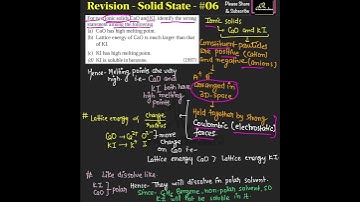 Revision - Solid State - #06
Please Share
& Subscribe
For two ionic solids CaO and KI, identify the wrong
statement among the following:
(a) CaO has high melting point.
(b) Lattice energy of CaO is much larger than that
of KI.
(c) KI has high melting point.
(d) KI is soluble in benzene.
Ionic solids
↳ CaO and KI
Constituent particles
are positive (cation)
and negative (anions)
Hence - Melting points are very
high i.e- CaO and
KI both have
high melting
points
A⁺ B⁻
Arranged in
3D space
Held together by strong
Coulombic (electrostatic)
forces
# Lattice energy ∝ Charge
Radius
CaO → Ca²⁺ O²⁻
KI → K⁺ I⁻
more
Charge
on CaO i.e-
Lattice energy CaO > Lattice energy KI
# Like dissolve like.
KI
CaO
Polar Hence- They will dissolve in polar solvent.
Since - C₆H₆ Benzene, non-polar solvent, SO
KI will not be soluble in it